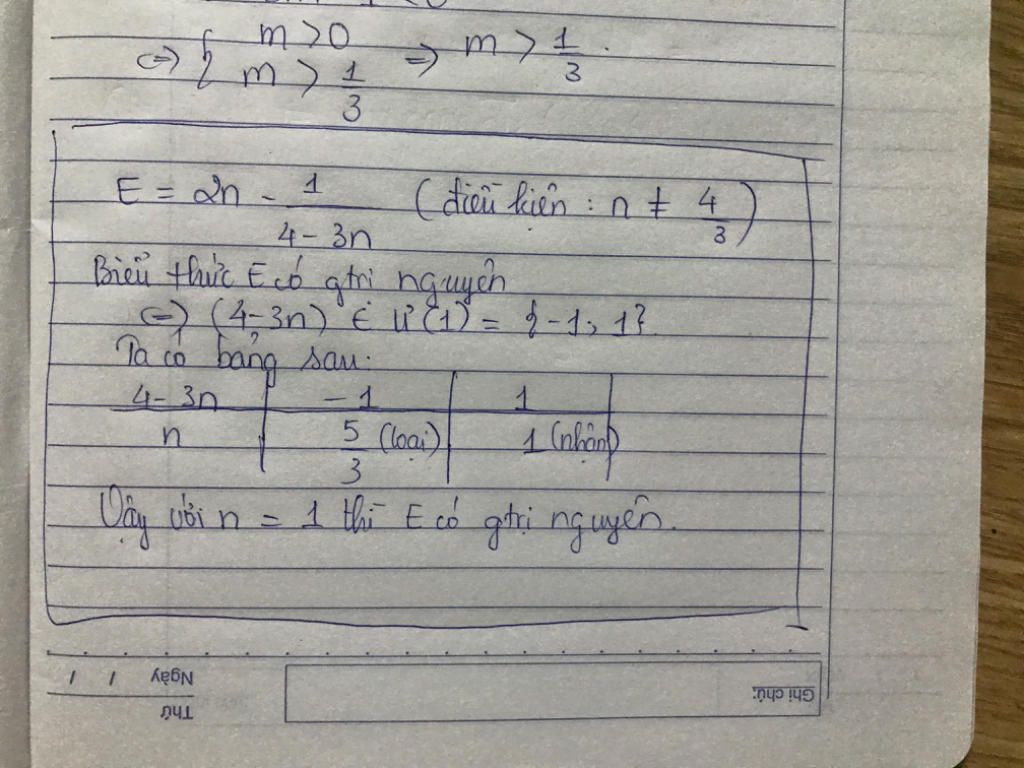 ⇔ { m > 0
m > 1/3 ⇒ m > 1/3 .
E = 2n - 1/(4 - 3n) (điều kiện : n ≠ 4/3)
Biểu thức E có gtri nguyên
⇔ (4-3n) ∈ Ư(1) = {-1; 1}.
Ta có bảng sau:
4-3n | -1 | 1
n | 5/3 (loại) | 1 (nhận)
Vậy với n = 1 thì E có gtrị nguyên.
Ghi chú:
Ngày / /
Thứ